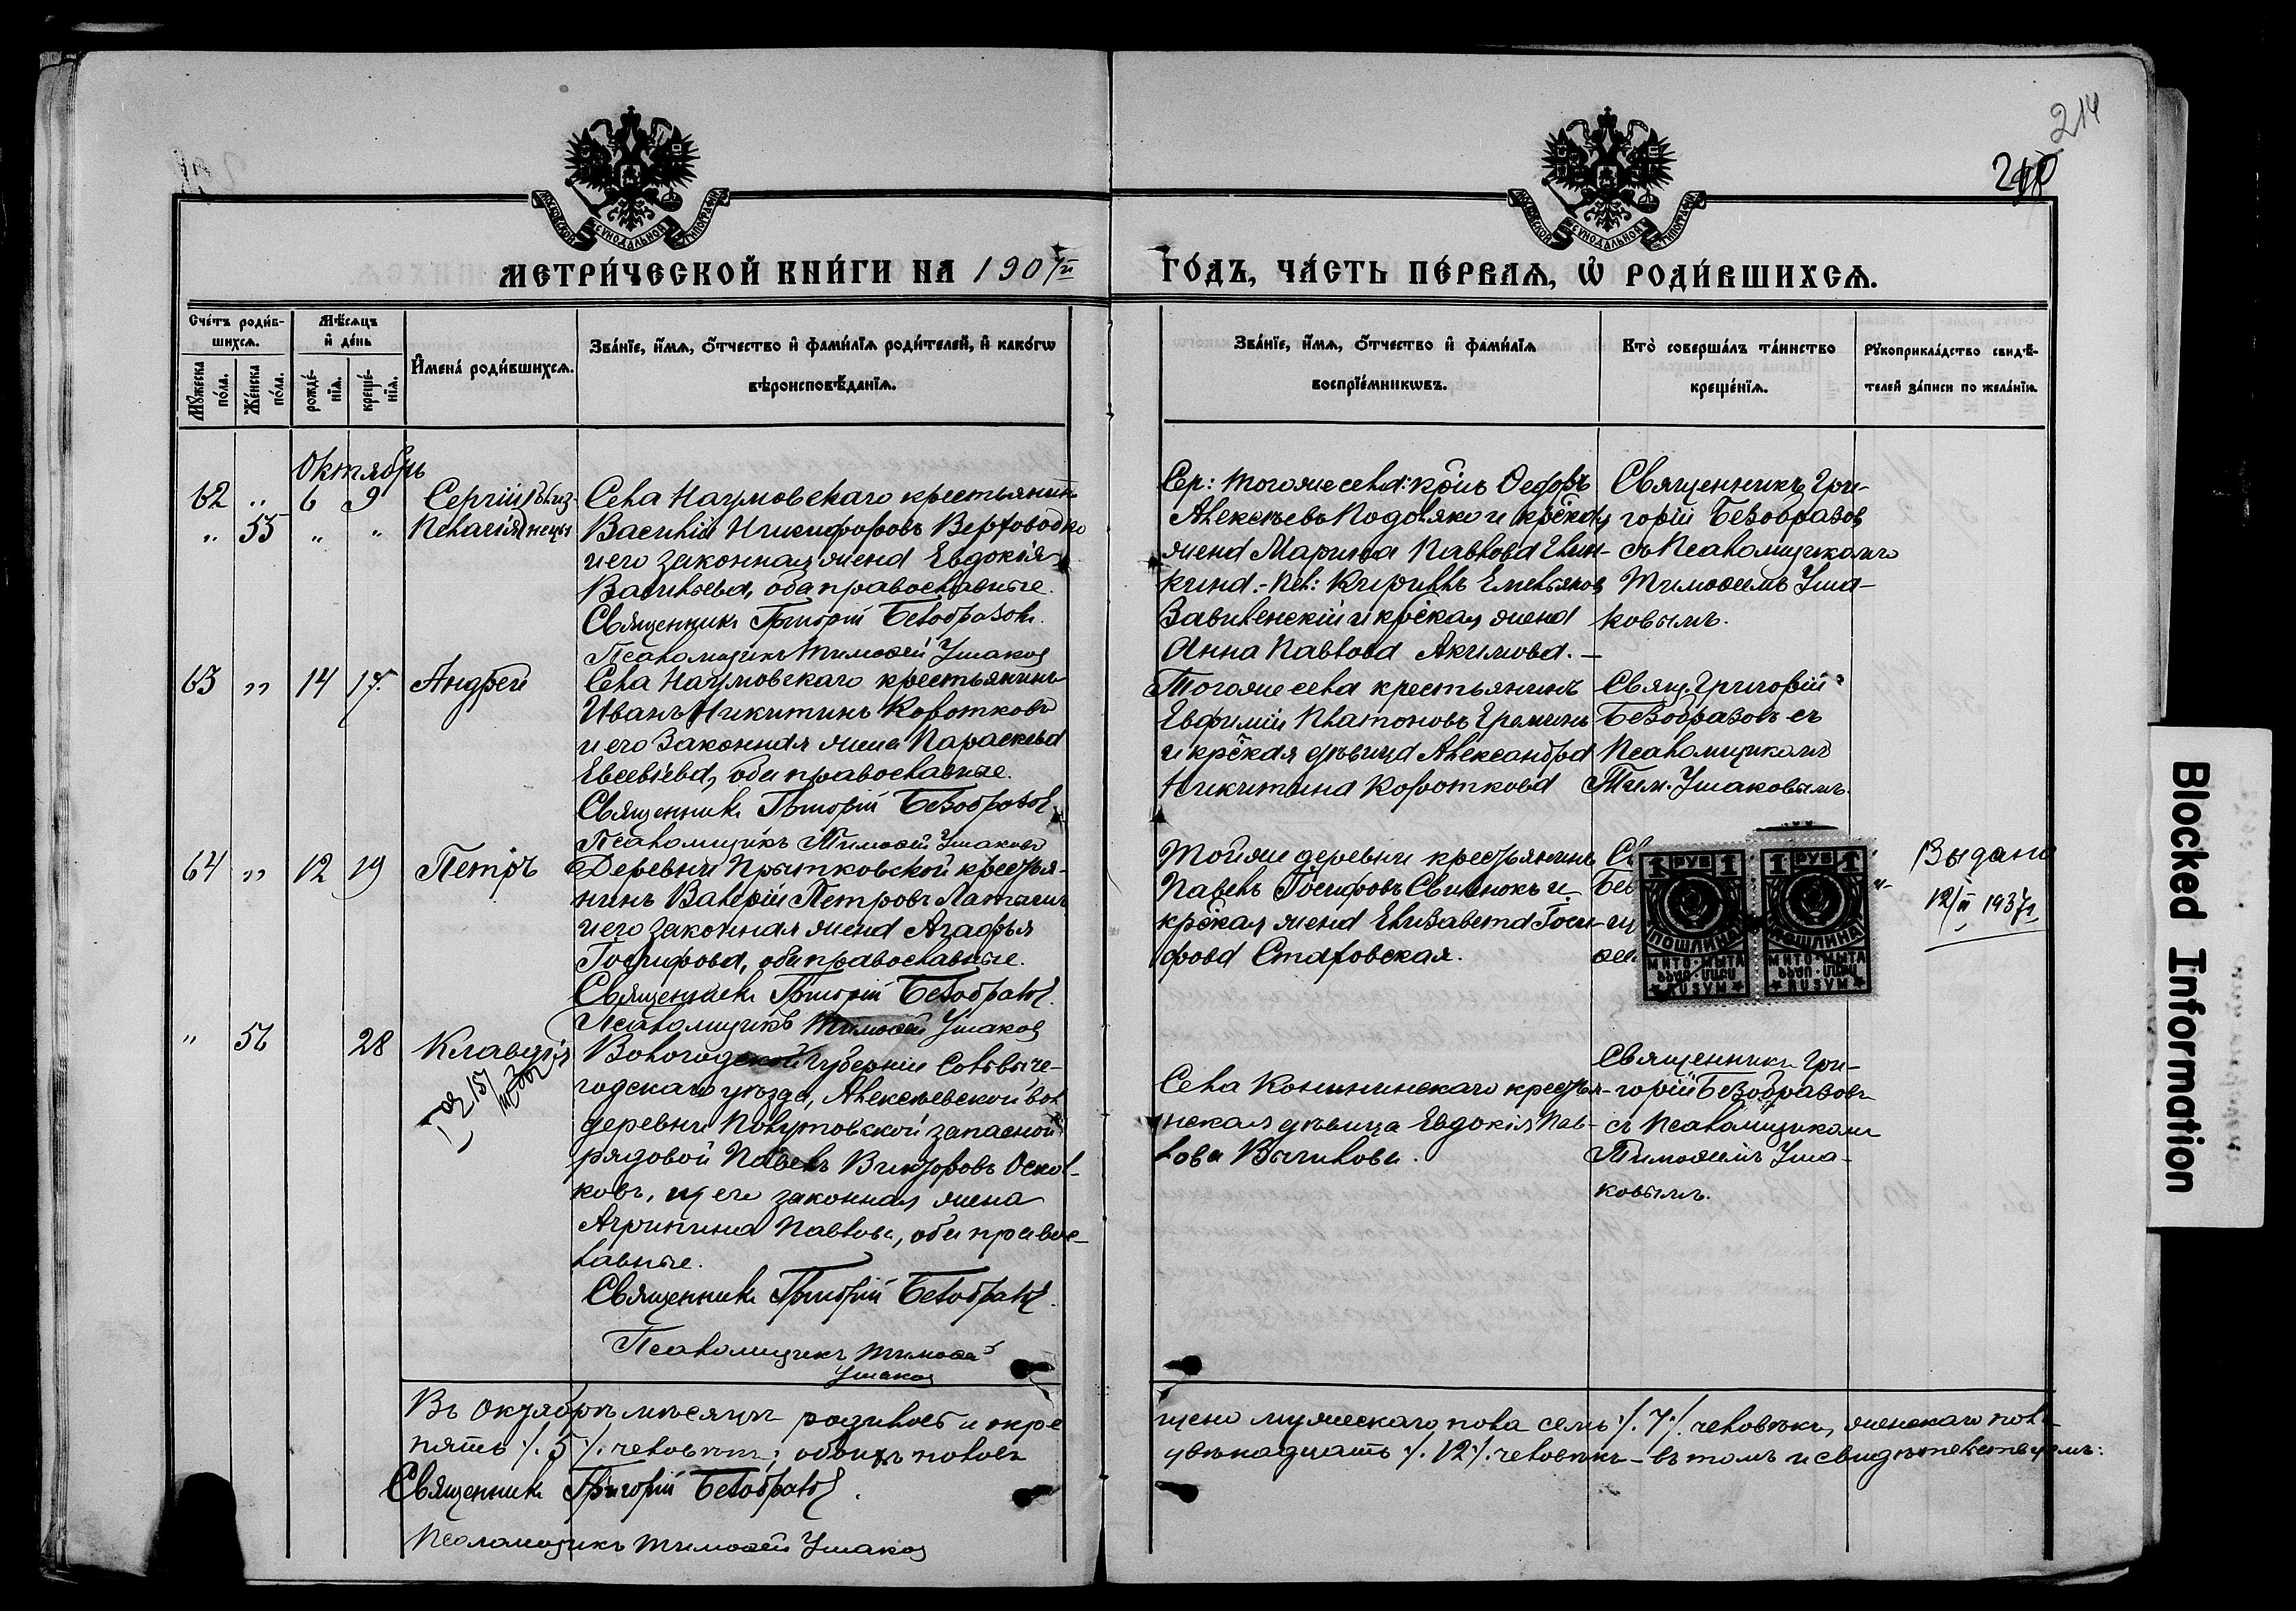 214
210
МОСКОВСКОЙ СѴНОДАЛЬНОЙ ТИПОГРАФІИ
МОСКОВСКОЙ СѴНОДАЛЬНОЙ ТИПОГРАФІИ
МЕТРИ́ЧЕСКОЙ КНИ́ГИ НА 1901й
ГО́ДЪ, ЧА́СТЬ ПЕ́РВАѦ, Ѡ҆ РОДИ́ВШИХСѦ.
Сче́тъ роди́в-
шихсѧ.
Мꙋ́жеска по́ла.
Же́нска по́ла.
Мѣ́сѧцъ
и҆ де́нь
рожде́-
нїѧ.
креще́-
нїѧ.
И҆мена̀ роди́вшихсѧ.
Зва́нїе, и҆́мѧ, ѻ҆́тчество и҆ фами́лїѧ роди́телей, и҆ како́гѡ
вѣроисповѣ́данїѧ.
Зва́нїе, и҆́мѧ, ѻ҆́тчество и҆ фами́лїѧ
воспрїе́мникѡвъ.
Кто̀ соверша́лъ та́инство
креще́нїѧ.
Рꙋкоприкла́дство свидѣ́-
телей за́писи по жела́нїю.
Октябрь
62 " 6 9 Сергій близ-
" 55 " " Пелагія нецы
Села Наумовскаго крестьянинъ
Василій Никифоровъ Верховодко
и его законная жена Евдокія
Васильева, оба православные.
Священникъ Григорій Безобразовъ.
Псаломщикъ Тимоѳей Ушаковъ
Сер: тогоже села: кр̃нъ Ѳедоръ
Алексѣевъ Подоляко и кр̃ская
жена Марина Павлова Елин-
кина. - Пел: Кирилъ Емельяновъ
Завиленскій и кр̃ская жена
Анна Павлова Акимова. —
Священникъ Гри-
горій Безобразовъ
съ Псаломщикомъ
Тимоѳеемъ Уша-
ковымъ.
63 " 14 17. Андрей
Села Наумовскаго крестьянинъ
Иванъ Никитинъ Коротковъ
и его законная жена Параскева
Евсевіева, оба православные.
Священникъ Григорій Безобразовъ
Псаломщикъ Тимоѳей Ушаковъ
Тогоже села крестьянинъ
Евфимій Платоновъ Еремин
и кр̃ская дѣвица Александра
Никитина Короткова
Свящ. Григорій
Безобразовъ съ
Псаломщикомъ
Тим. Ушаковымъ.
64 " 12 19 Петръ
Деревни Прытковской крестья-
нинъ Валерій Петровъ Латыгин
и его законная жена Агафья
Госифова, оба православные.
Священникъ Григорій Безобразовъ.
Псаломщикъ Тимоѳей Ушаковъ
Тойже деревни крестьянинъ
Павелъ Іосифовъ Свинюкъ и
кр̃ская жена Елизавета Госи-
фова Стаховская.
1 РУБ 1
ПОШЛИНА
МИТО·МЫТА
RUSYM
1 РУБ 1
ПОШЛИНА
МИТО·МЫТА
RUSYM
Выдано
12/II 1937г.
" 56 28 Клавдія
Вологодской губерніи Сольвыче-
годскаго уѣзда, Алексѣевской вол
деревни Полутовской запасной
рядовой Павелъ Викторовъ Оскол-
ковъ, и его законная жена
Агрипина Павлова, оба правос-
лавные.
Священникъ Григорій Безобразовъ.
Псаломщикъ Тимоѳей
Ушаковъ
Села Конининскаго крестья-
нская дѣвица Евдокія Пав-
лова Вычихова.
Священникъ Гри-
горій Безобразовъ
съ Псаломщикомъ
Тимоѳеемъ Уша-
ковымъ.
Въ Октябрѣ мѣсяцѣ родилось и окре
щено мужескаго пола семь ./. 7 ./. человѣкъ, женскаго пола
пять ./. 5 ./. человѣкъ; обоихъ половъ
двѣнадцать ./. 12 ./. человѣкъ - въ томъ и свидѣтельствуемъ:
Священникъ Григорій Безобразовъ.
Псаломщикъ Тимоѳей Ушаковъ
Blocked Information